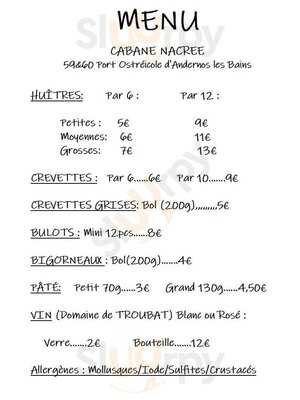 MENU
CABANE NACREE
59&60 Port Ostréicole d'Andernos les Bains
HUÎTRES: Par 6 : Par 12 :
Petites : 5€ 9€
Moyennes: 6€ 11€
Grosses: 7€ 13€
CREVETTES : Par 6......6€ Par 10......9€
CREVETTES GRISES: Bol (200g),,,,,,,,,5€
BULOTS : Mini 12pcs......8€
BIGORNEAUX : Bol(200g)......4€
PÂTÉ: Petit 70g......3€ Grand 130g......4,50€
VIN (Domaine de TROUBAT) Blanc ou Rosé :
Verre......2€ Bouteille......12€
Allergènes : Mollusques/Iode/Sulfites/Crustacés